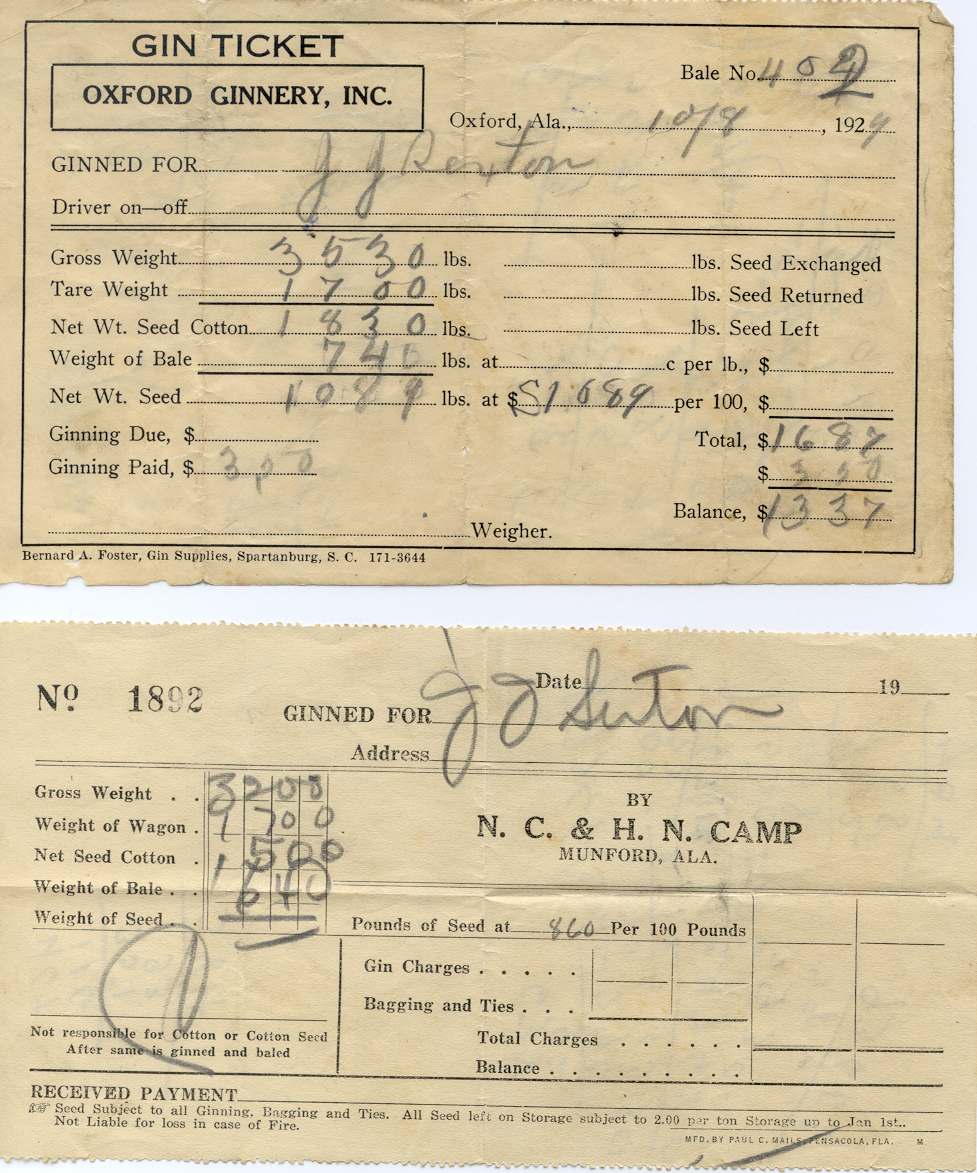 GIN TICKET
OXFORD GINNERY, INC.
Bale No. 402
Oxford, Ala., 10/8, 1929
GINNED FOR J J Sexton
Driver on—off
Gross Weight 3530 lbs. lbs. Seed Exchanged
Tare Weight 1700 lbs. lbs. Seed Returned
Net Wt. Seed Cotton 1830 lbs. lbs. Seed Left
Weight of Bale 74 lbs. at c per lb., $
Net Wt. Seed 1089 lbs. at $ per 100, $
Ginning Due, $ Total, $1687
Ginning Paid, $ 350 $ 350
Balance, $1337
Weigher.
Bernard A. Foster, Gin Supplies, Spartanburg, S. C. 171-3644
No 1892
Date 19
GINNED FOR J J Sexton
Address
Gross Weight . . 3200
Weight of Wagon . 1700
Net Seed Cotton . 1500
Weight of Bale . . 640
Weight of Seed . .
BY
N. C. & H. N. CAMP
MUNFORD, ALA.
Pounds of Seed at 860 Per 100 Pounds
Gin Charges . . . . .
Bagging and Ties . . .
Total Charges . . . . . .
Balance . . . . . . . .
Not responsible for Cotton or Cotton Seed
After same is ginned and baled
RECEIVED PAYMENT
Seed Subject to all Ginning, Bagging and Ties. All Seed left on Storage subject to 2.00 per ton Storage up to Jan 1st..
Not Liable for loss in case of Fire.
MFD. BY PAUL C. MAILS, PENSACOLA, FLA. M